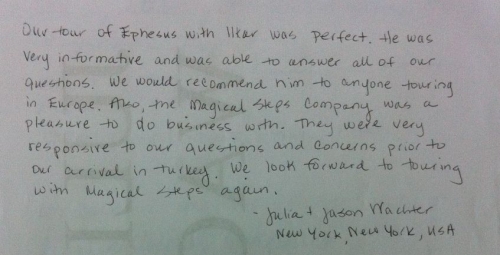 Our tour of Ephesus with Ilkar was perfect. He was
very informative and was able to answer all of our
questions. We would recommend him to anyone touring
in Europe. Also, the Magical Steps Company was a
pleasure to do business with. They were very
responsive to our questions and concerns prior to
our arrival in Turkey. We look forward to touring
with Magical Steps again.
- Julia + Jason Wachter
New York, New York, USA